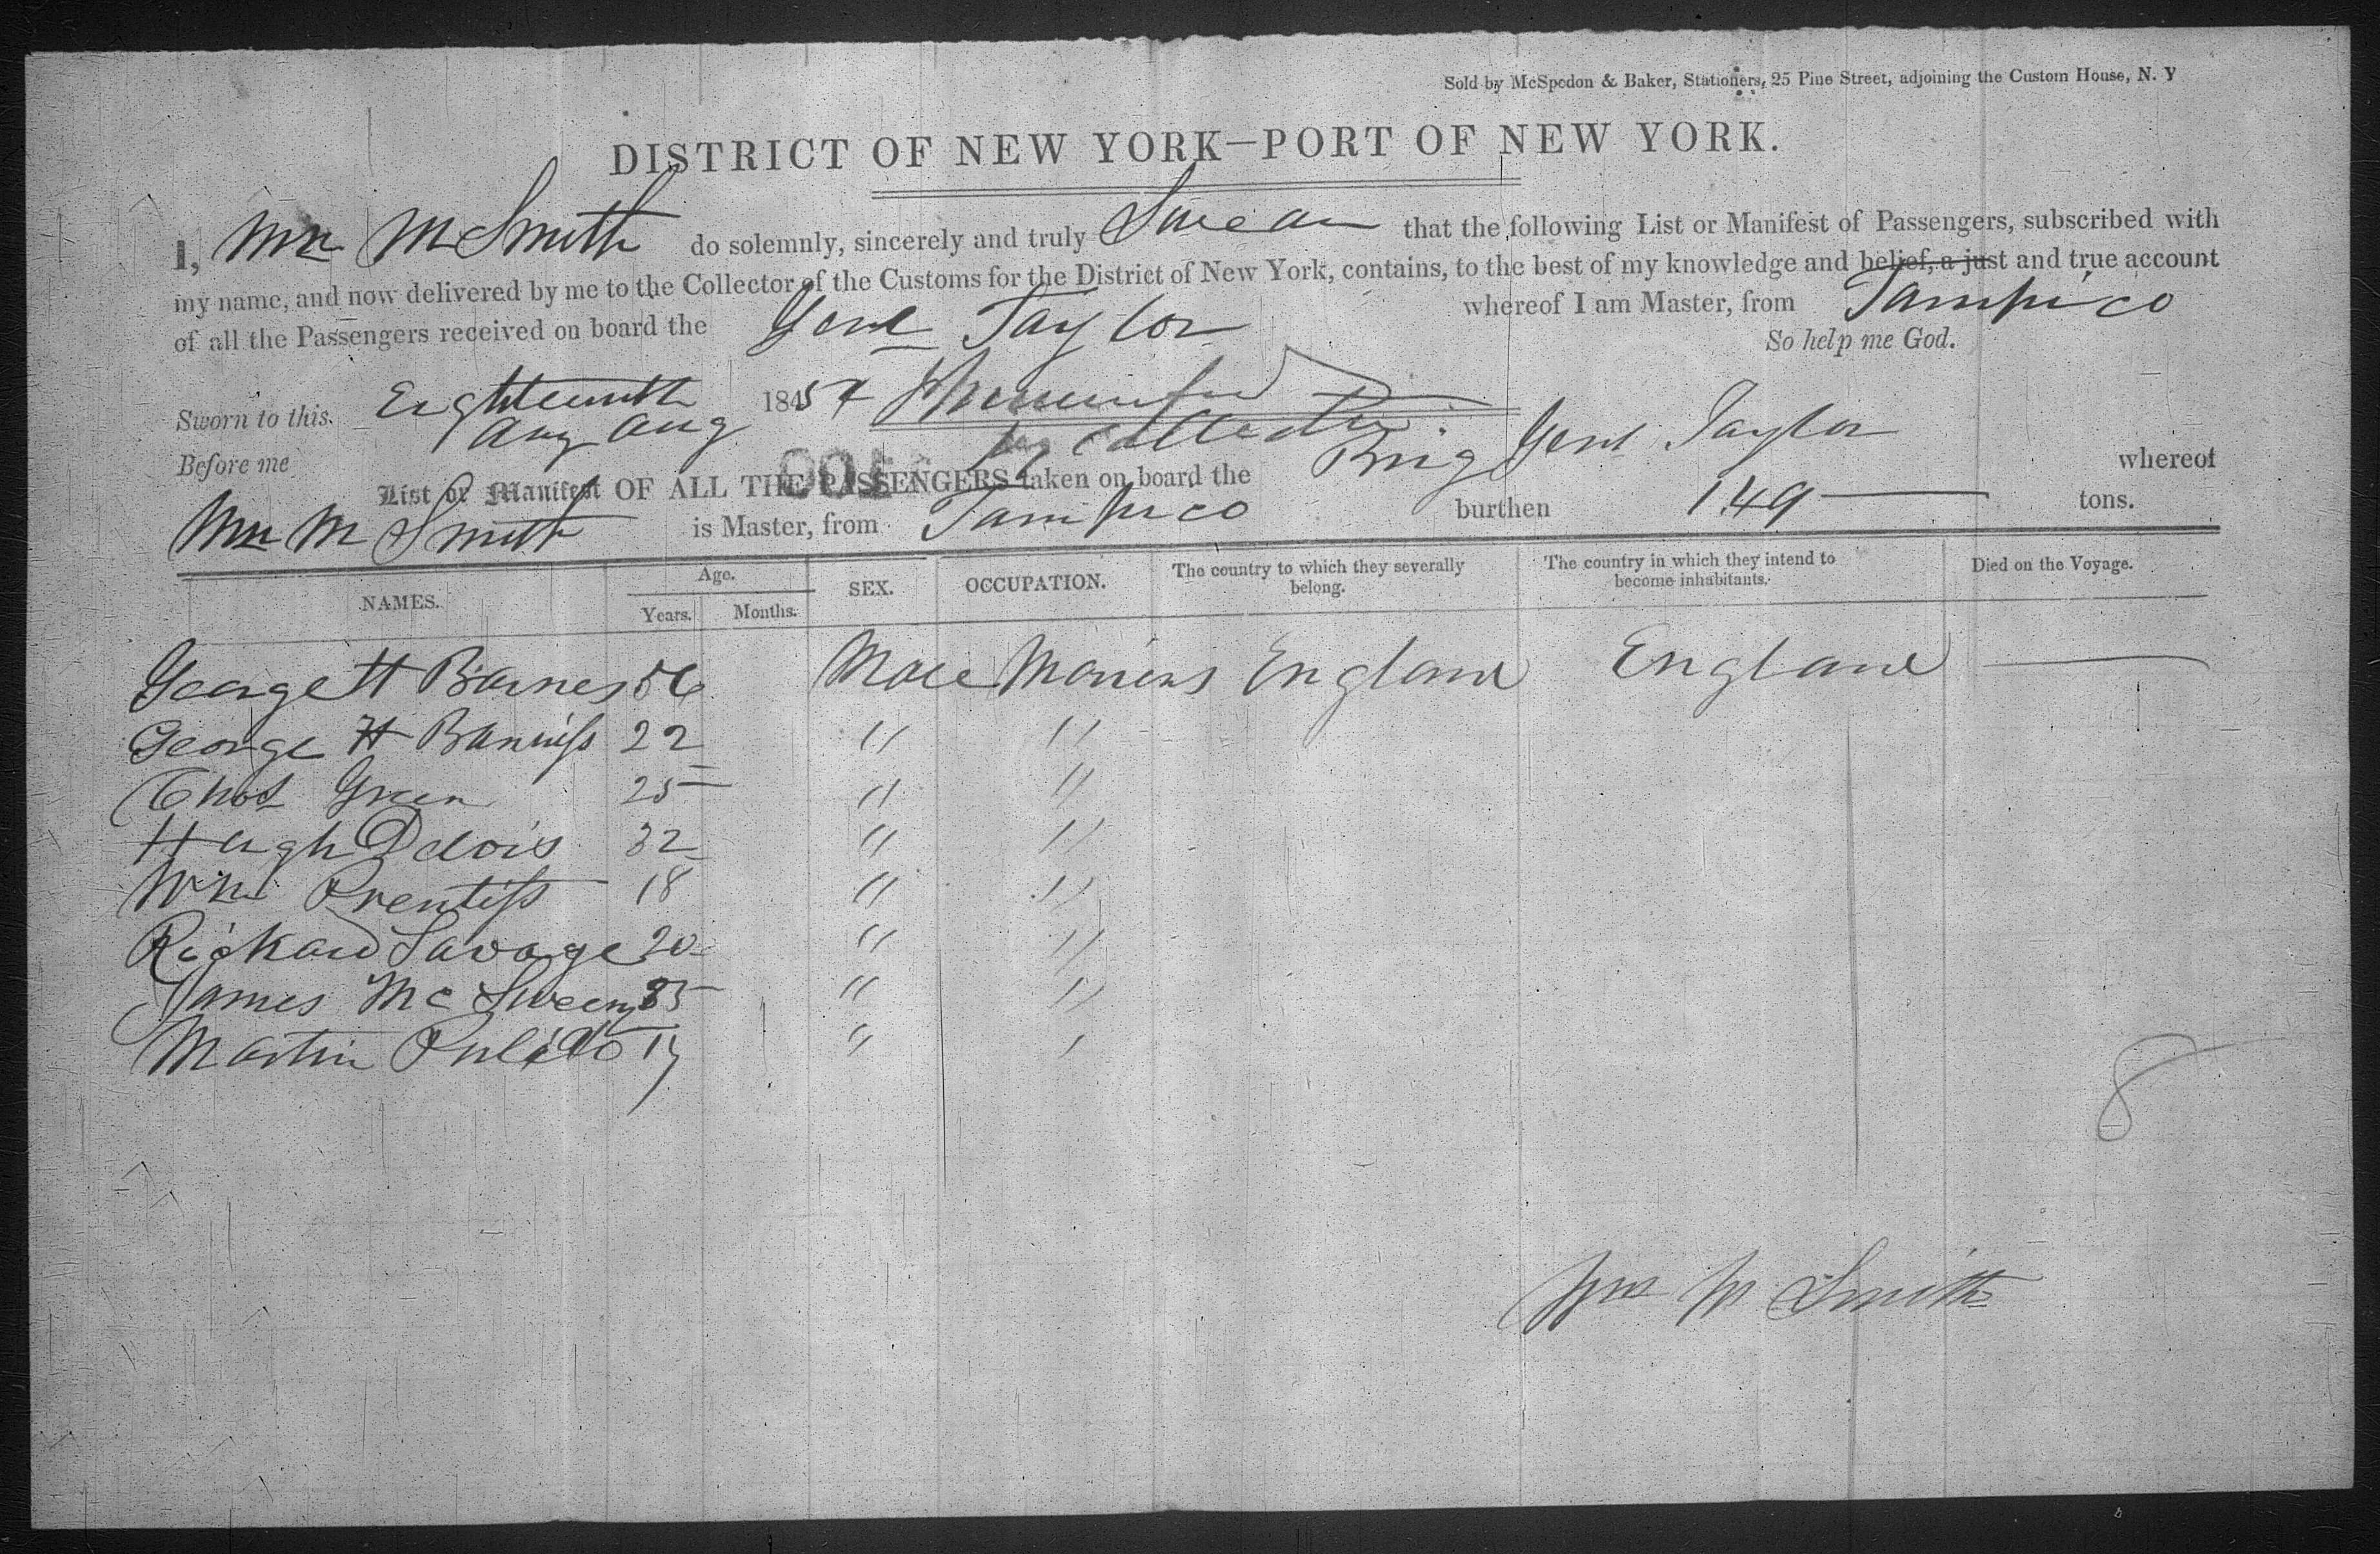 Sold by McSpedon & Baker, Stationers, 25 Pine Street, adjoining the Custom House, N. Y
DISTRICT OF NEW YORK—PORT OF NEW YORK.
I, Wm M Smith do solemnly, sincerely and truly Swear that the following List or Manifest of Passengers, subscribed with
my name, and now delivered by me to the Collector of the Customs for the District of New York, contains, to the best of my knowledge and belief, a just and true account
of all the Passengers received on board the Genl Taylor whereof I am Master, from Tampico
So help me God.
Sworn to this Eighteenth 1854
Aug Aug
Before me
List or Manifest OF ALL THE PASSENGERS taken on board the Brig Genl Taylor whereof
Wm M Smith is Master, from Tampico burthen 149 tons.
NAMES. Age. SEX. OCCUPATION. The country to which they severally belong. The country in which they intend to become inhabitants. Died on the Voyage.
Years. Months.
George H Barnes 56 Male England England
George H 22 " "
Chas Green 25 " "
Hugh 32 " "
Wm Prentiss 18 " "
Richard Savage 20 " "
James McSweeny 35 " "
Martin Pulido 17 " "
8
Wm M Smith